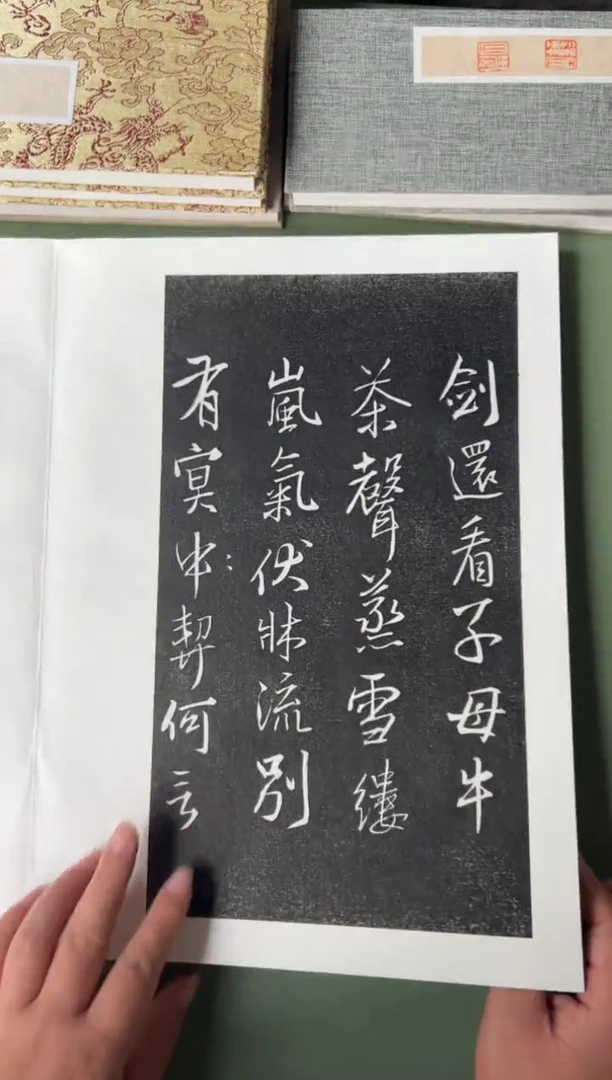 剑還看子母牛
茶聲蒸雪縷
嵐氣伏牀流別
有冥中契何言